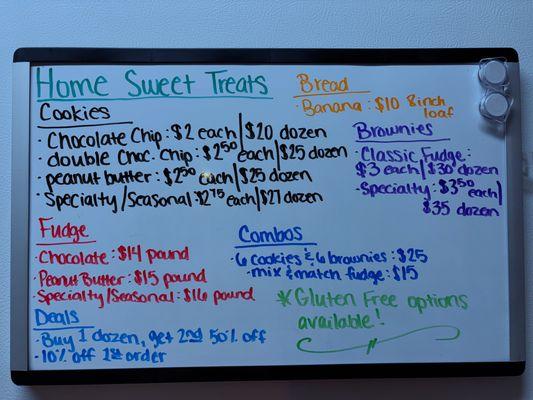 Home Sweet Treats
Cookies
· Chocolate Chip: $2 each/$20 dozen
· double Choc. Chip: $2⁵⁰ each/$25 dozen
· peanut butter: $2⁵⁰ each/$25 dozen
· Specialty/Seasonal $2⁷⁵ each/$27 dozen
Bread
· Banana: $10 8inch
loaf
Brownies
· Classic Fudge:
$3 each/$30 dozen
· Specialty: $3⁵⁰ each/
$35 dozen
Fudge
· Chocolate: $14 pound
· Peanut Butter: $15 pound
· Specialty/Seasonal: $16 pound
Combos
· 6 cookies & 6 brownies: $25
· mix & match fudge: $15
* Gluten Free options
available!
Deals
· Buy 1 dozen, get 2nd 50% off
· 10% off 1st order